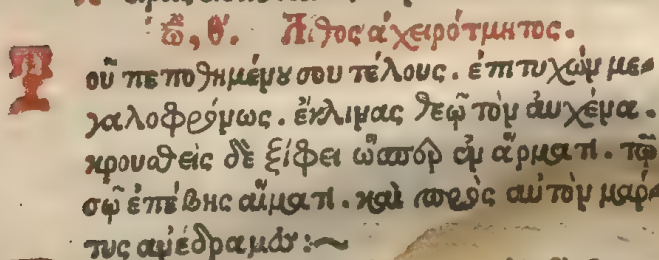 ᾠ, θ. Λίθος ἀχειρότμητος.
Τοῦ πεποθημένου σου τέλους. ἐπιτυχὼν με-
γαλοφρόνως. ἔκλινας θεῷ τὸν αὐχένα.
κρουσθεὶς δὲ ξίφει ὥσπερ ἐν ἅρματι. τῷ
σῷ ἐπέβης αἵματι. καὶ πρὸς αὐτὸν μάρ-
τυς ἀνέδραμες:~